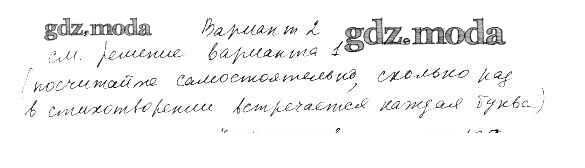 gdz.moda Вариант 2
см. решение варианта 1 gdz.moda
(посчитайте самостоятельно, сколько раз
в стихотворении встречается каждая буква)